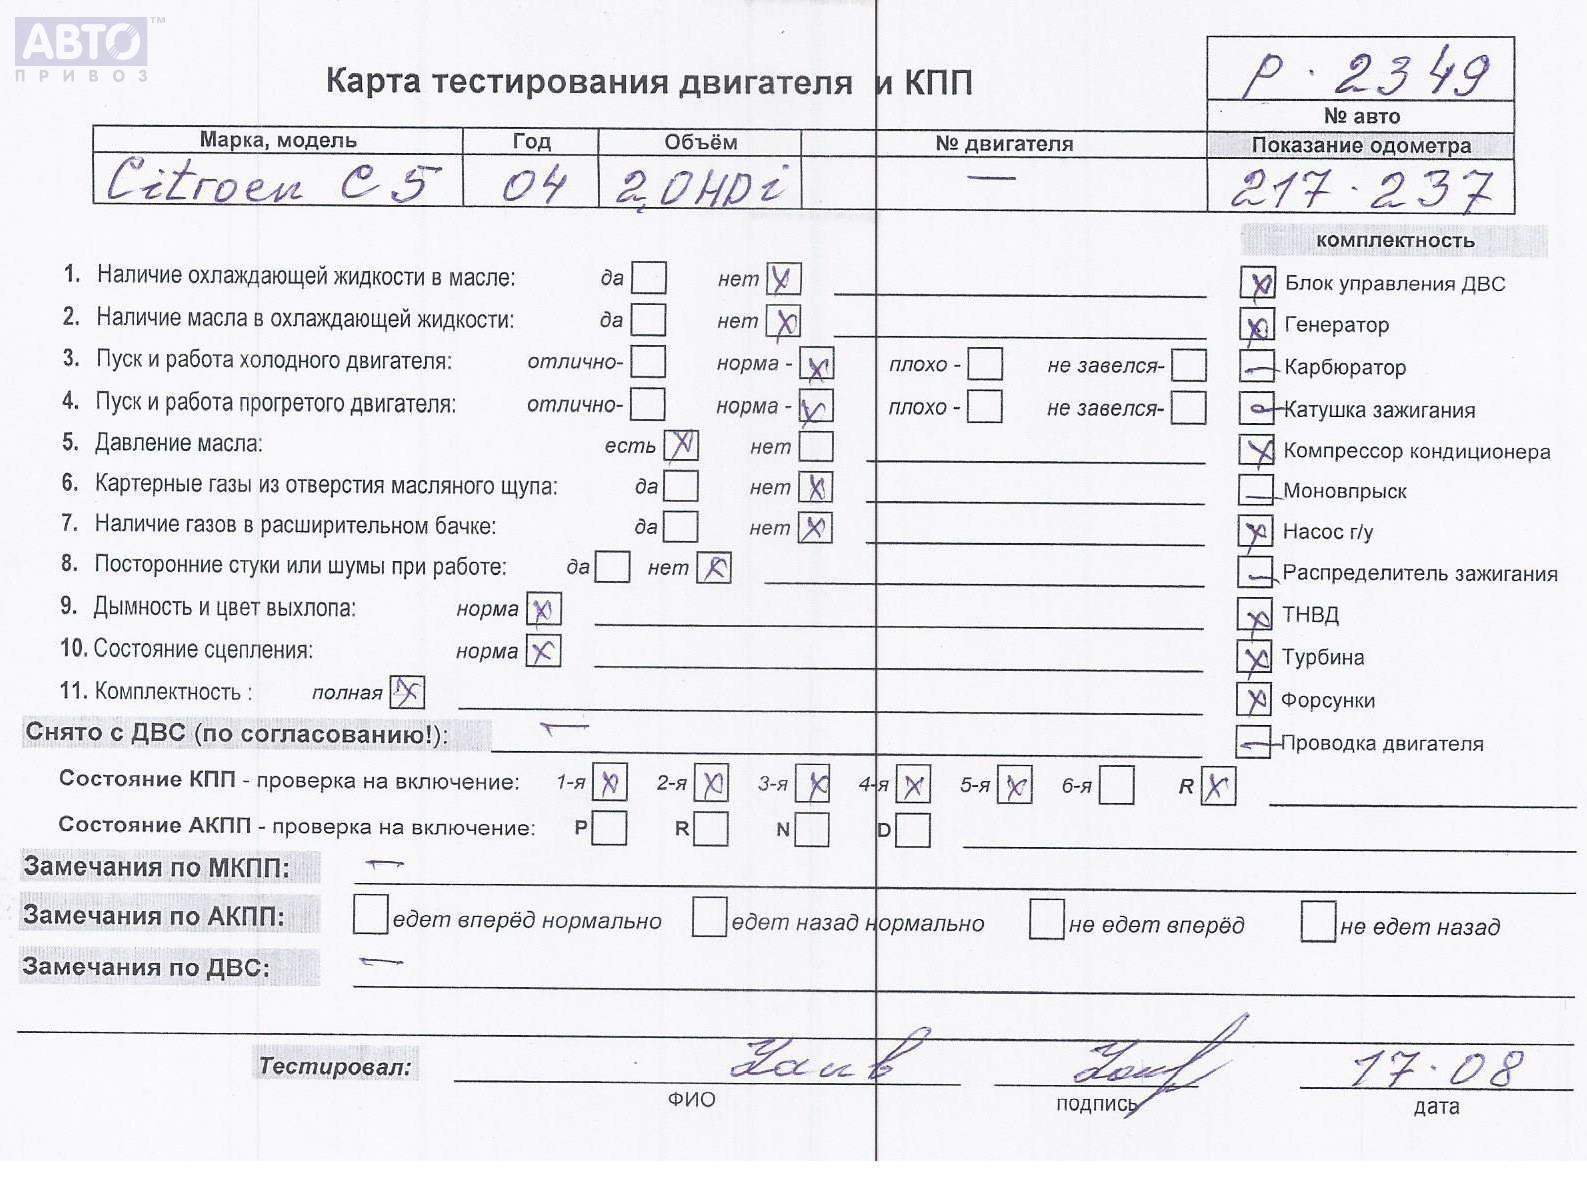 АВТО™
ПРИВОЗ
Карта тестирования двигателя и КПП
P · 2349
№ авто
Марка, модель Год Объём № двигателя Показание одометра
Citroen C5 04 2,0HDi — 217·237
комплектность
1. Наличие охлаждающей жидкости в масле: да нет
2. Наличие масла в охлаждающей жидкости: да нет
3. Пуск и работа холодного двигателя: отлично- норма - плохо - не завелся-
4. Пуск и работа прогретого двигателя: отлично- норма - плохо - не завелся-
5. Давление масла: есть нет
6. Картерные газы из отверстия масляного щупа: да нет
7. Наличие газов в расширительном бачке: да нет
8. Посторонние стуки или шумы при работе: да нет
9. Дымность и цвет выхлопа: норма
10. Состояние сцепления: норма
11. Комплектность : полная
Блок управления ДВС
Генератор
Карбюратор
Катушка зажигания
Компрессор кондиционера
Моновпрыск
Насос г/у
Распределитель зажигания
ТНВД
Турбина
Форсунки
Проводка двигателя
Снято с ДВС (по согласованию!): —
Состояние КПП - проверка на включение: 1-я 2-я 3-я 4-я 5-я 6-я R
Состояние АКПП - проверка на включение: P R N D
Замечания по МКПП: —
Замечания по АКПП: едет вперёд нормально едет назад нормально не едет вперёд не едет назад
Замечания по ДВС: —
Тестировал: 17·08
ФИО подпись дата